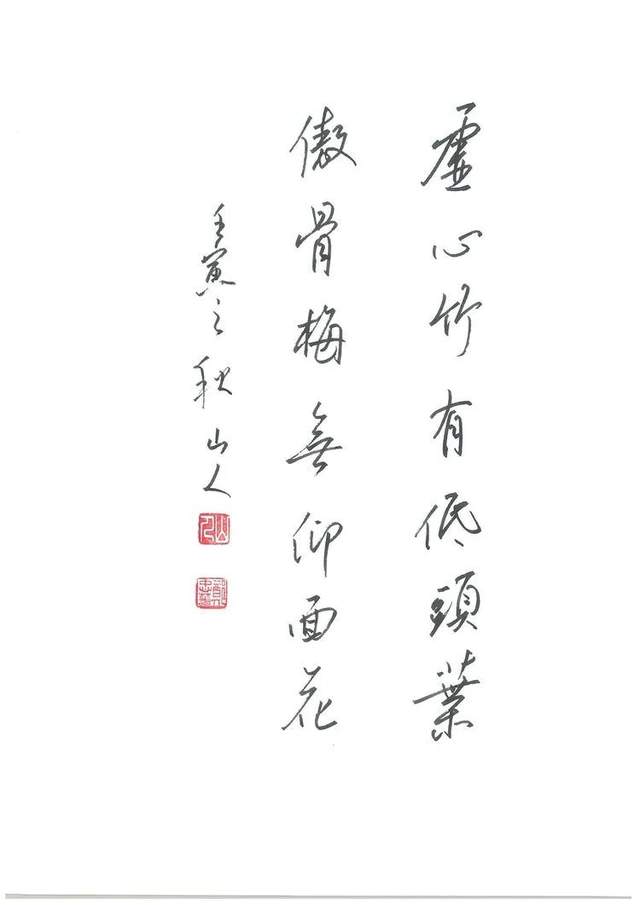 虛心竹有低頭葉
傲骨梅無仰面花
壬寅之秋山人
山人